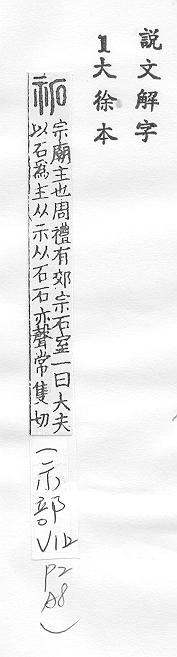 説文解字
1大徐本
祏 宗廟主也周禮有郊宗石室一曰大夫
以石為主从示从石石亦聲常隻切
(示部
V12
P2
A8)